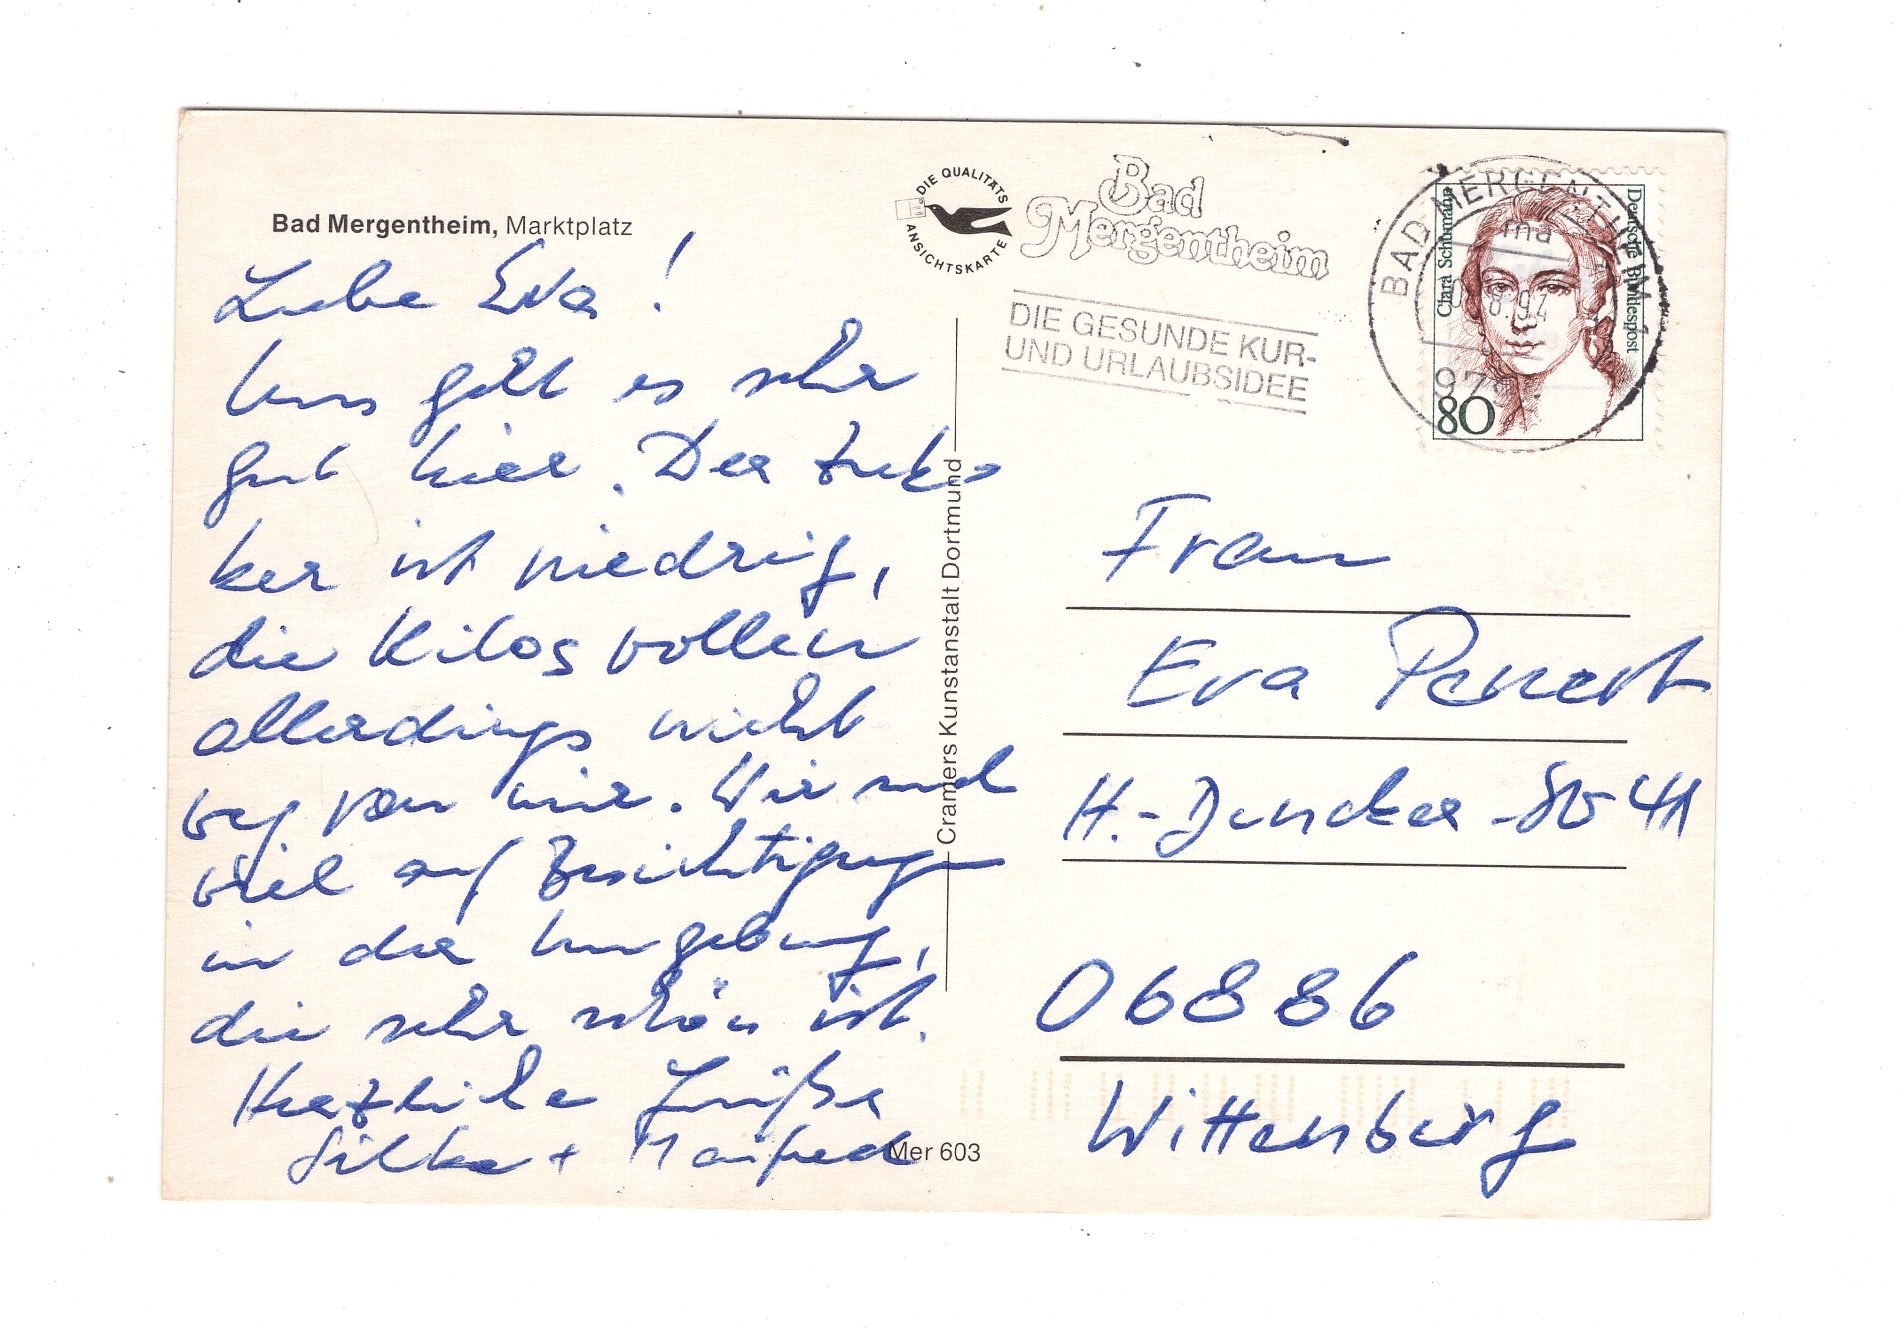 Bad Mergentheim, Marktplatz
Liebe Eva!
Uns geht es sehr
gut hier. Der Zuk-
ker ist niedrig,
die Kilos wollen
allerdings nicht
weg von mir. Wir sind
viel auf Besichtigungen
in der Umgebung,
die sehr schön ist.
Herzliche Grüße
Silke + Manfred
Mer 603
Cramers Kunstanstalt Dortmund
DIE QUALITÄTS
ANSICHTSKARTE
Bad
Mergentheim
DIE GESUNDE KUR-
UND URLAUBSIDEE
BAD MERGENTHEIM
ma
8.94
979
Clara Schumann
Deutsche Bundespost
80
Frau
Eva
H.-Duncker-Str 41
06886
Wittenberg